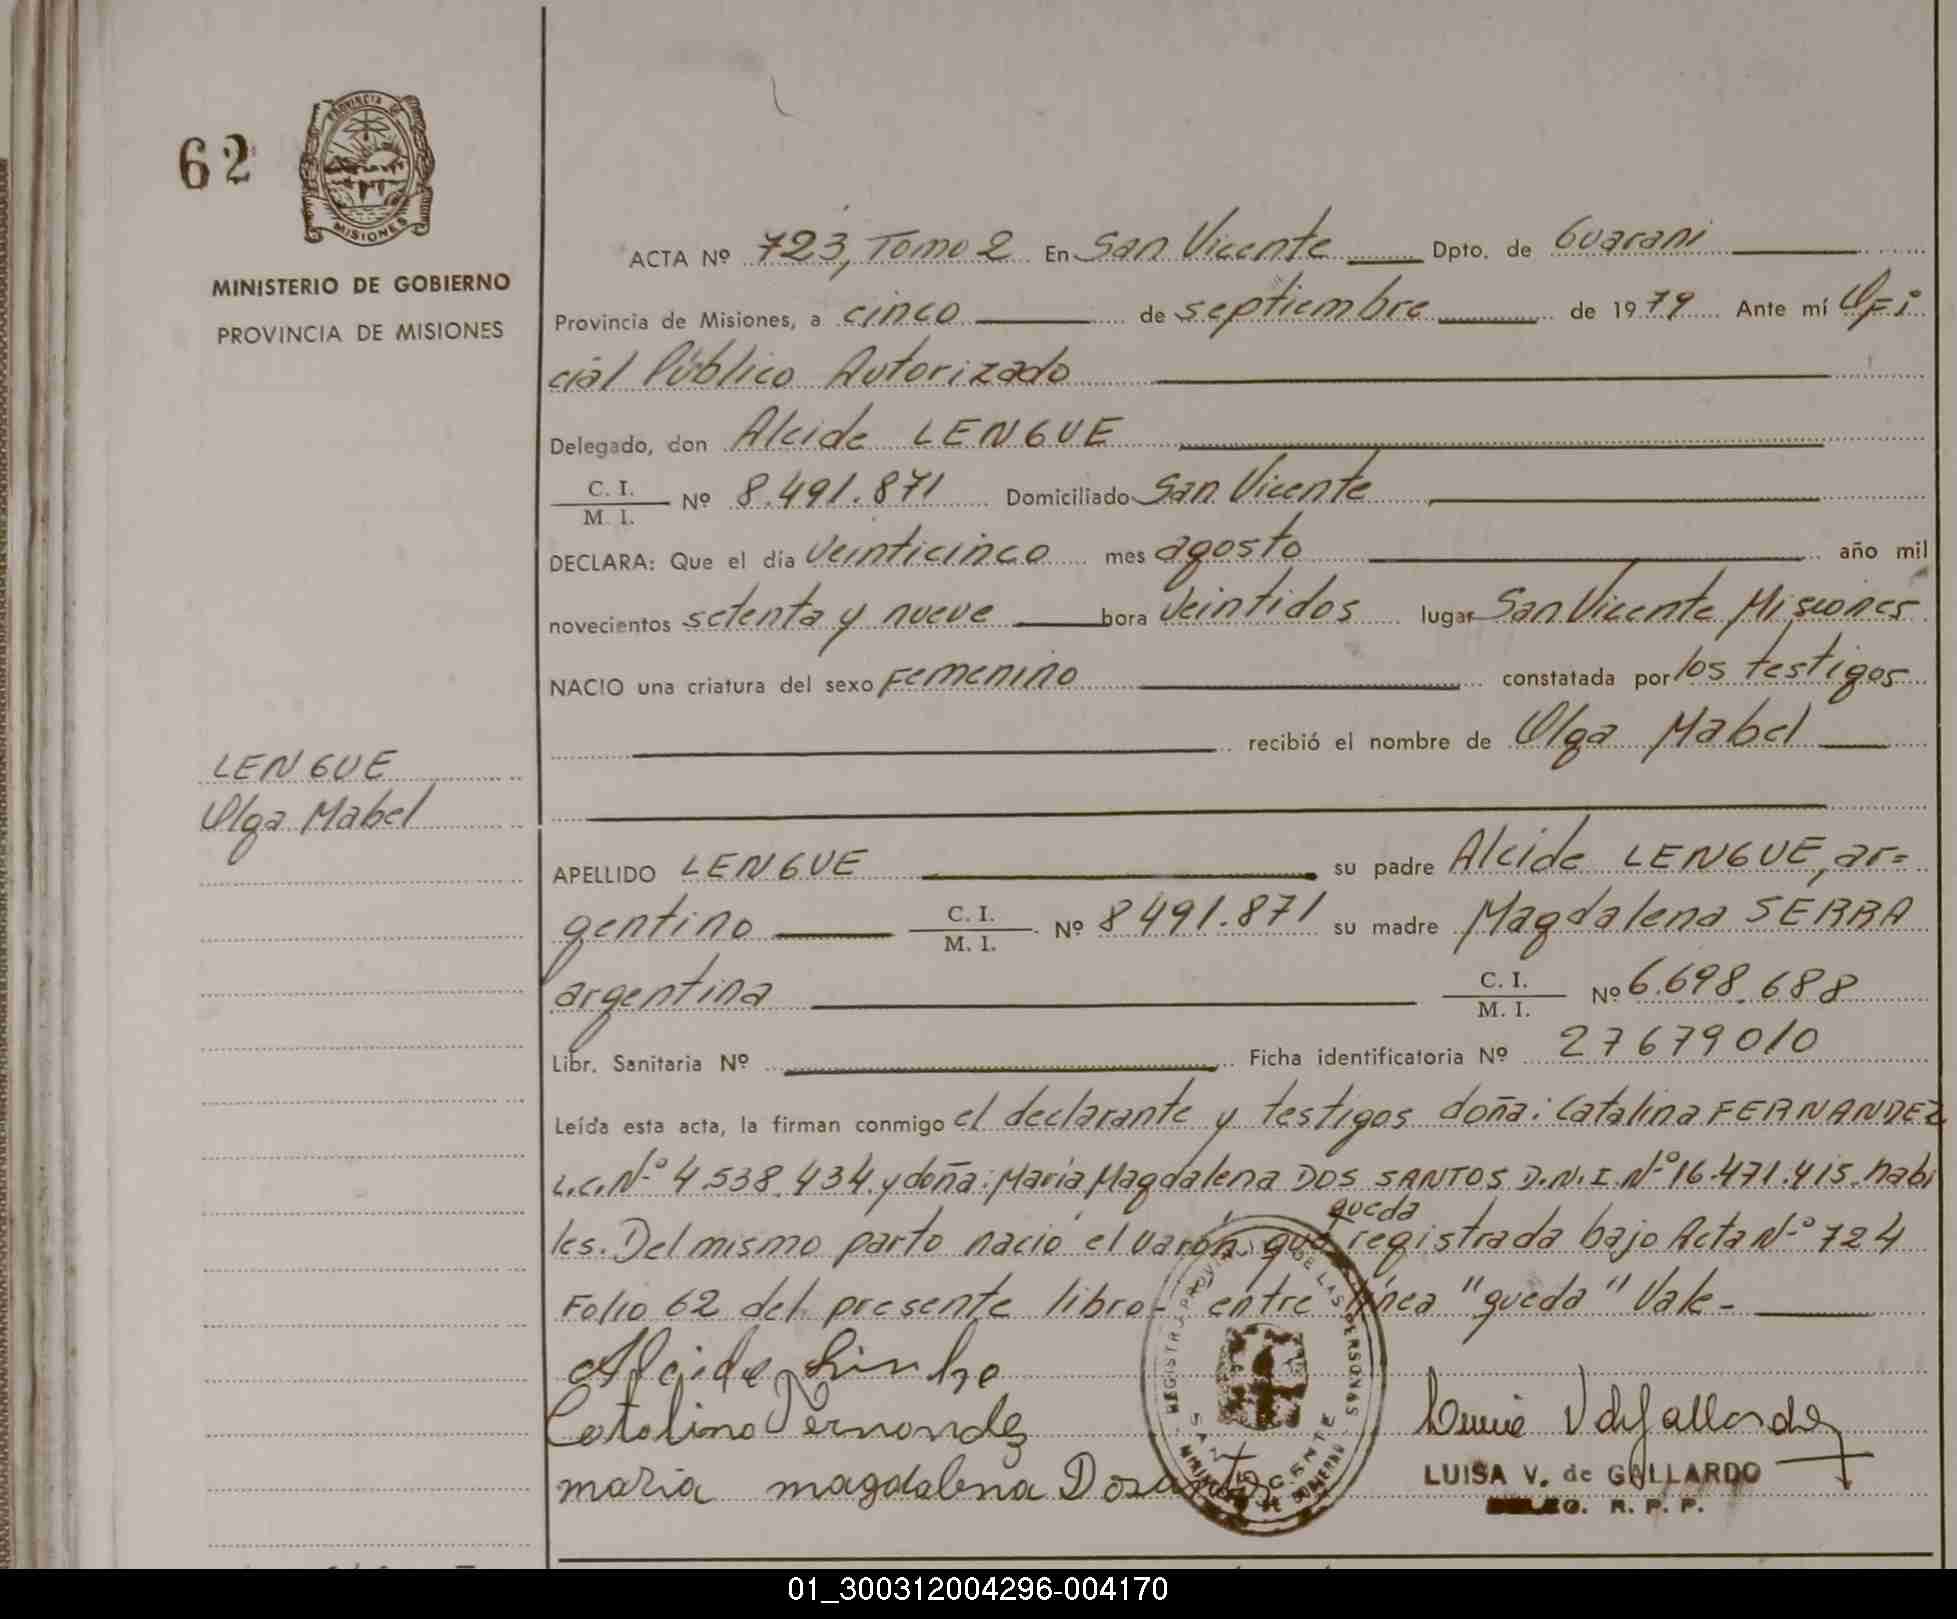 62
PROVINCIA DE
MISIONES
MINISTERIO DE GOBIERNO
PROVINCIA DE MISIONES
LENGUE
Olga Mabel
ACTA Nº 723, Tomo 2 En San Vicente Dpto. de Guaraní
Provincia de Misiones, a cinco de septiembre de 1979 Ante mí Ofi
cial Público Autorizado
Delegado, don Alcide LENGUE
C. I.
M. I. Nº 8.491.871 Domiciliado San Vicente
DECLARA: Que el día veinticinco mes agosto año mil
novecientos setenta y nueve hora veintidos lugar San Vicente Misiones
NACIO una criatura del sexo Femenino constatada por los testigos
recibió el nombre de Olga Mabel
APELLIDO LENGUE su padre Alcide LENGUE, ar=
gentino C. I. M. I. Nº 8491.871 su madre Magdalena SERRA
argentina C. I. M. I. Nº 6.698.688
Libr. Sanitaria Nº Ficha identificatoria Nº 27679010
Leída esta acta, la firman conmigo el declarante y testigos doña: Catalina FERNANDEZ
L.C. Nº 4.538.434 y doña: María Magdalena DOS SANTOS D.N.I. Nº 16.471.415. habi
queda
les. Del mismo parto nació el varón que registrada bajo Acta Nº 724
Folio 62 del presente libro - entre línea "queda" Vale -
Alcide
Catalina Fernandez
maria magdalena Dosantos
REGISTRO PROVINCIAL DE LAS PERSONAS
SAN VICENTE
MINISTERIO DE GOBIERNO
LUISA V. de GALLARDO
DELEG. R. P. P.
01_300312004296-004170